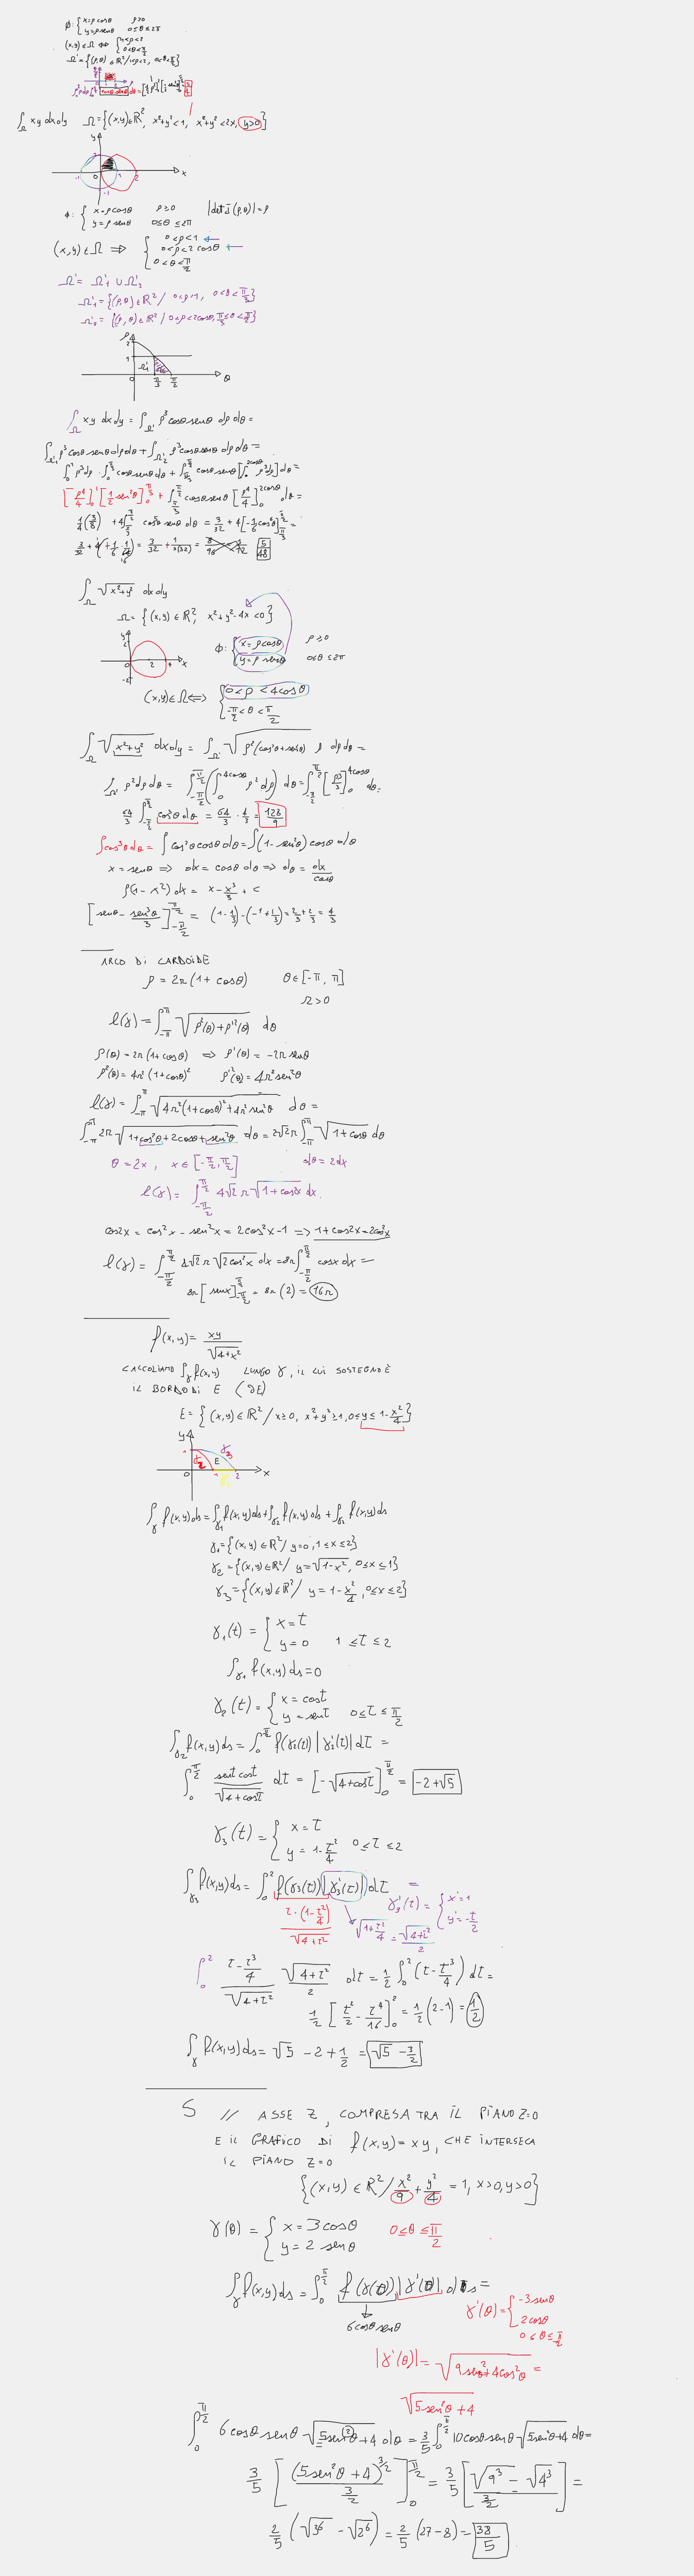 ϕ: { x=ρcosθ   ρ>0
y=ρsenθ   0≤θ≤2π
(x,y)∈Ω ⟺ { 1<ρ<2
0<θ<π/2
Ω'={(ρ,θ)∈ℝ²/1<ρ<2, 0<θ<π/2}
∫_Ω xy dxdy   Ω={(x,y)∈ℝ², x²+y²<1, x²+y²<2x, y>0}
y
x
-1 0 1 2
-1
ϕ: { x=ρcosθ   ρ≥0   |det J(ρ,θ)|=ρ
y=ρsenθ   0≤θ≤2π
(x,y)∈Ω ⟹ { 0<ρ<1
0<ρ<2cosθ
0<θ<π/2
Ω'= Ω'₁ ∪ Ω'₂
Ω'₁={(ρ,θ)∈ℝ²/ 0<ρ<1, 0<θ<π/3}
Ω'₂={(ρ,θ)∈ℝ²/ 0<ρ<2cosθ, π/3≤θ<π/2}
ρ
2
1
Ω'₁
0 π/3 π/2 θ
∫_Ω xy dxdy = ∫_Ω' ρ³cosθsenθ dρdθ=
∫_Ω'₁ ρ³cosθsenθdρdθ+∫_Ω'₂ ρ³cosθsenθ dρdθ=
∫₀¹ρ³dρ·∫₀^π/3 cosθsenθdθ+∫_π/3^π/2 cosθsenθ[∫₀^2cosθ ρ³dρ]dθ=
[ρ⁴/4]₀¹[1/2 sen²θ]₀^π/3+∫_π/3^π/2 cosθsenθ[ρ⁴/4]₀^2cosθ dθ=
1/4(3/8)+4∫_π/3^π/2 cos⁵θsenθdθ=3/32+4[-1/6cos⁶θ]_π/3^π/2=
5/48
∫_Ω √(x²+y²) dxdy
Ω={(x,y)∈ℝ², x²+y²-4x<0}
y
2
0 2 4 x
-2
ϕ: { x=ρcosθ   ρ≥0
y=ρsenθ   0≤θ≤2π
(x,y)∈Ω⟺ { 0<ρ<4cosθ
-π/2<θ<π/2
∫_Ω √(x²+y²) dxdy = ∫_Ω' √(ρ²(cos²θ+sen²θ)) ρ dρdθ=
∫_Ω' ρ²dρdθ= ∫_-π/2^π/2(∫₀^4cosθ ρ²dρ)dθ=∫_-π/2^π/2[ρ³/3]₀^4cosθ dθ=
64/3∫_-π/2^π/2 cos³θdθ=64/3·4/3=128/9
∫cos³θdθ=∫cos²θcosθdθ=∫(1-sen²θ)cosθdθ
x=senθ ⟹ dx=cosθdθ⟹dθ=dx/cosθ
∫(1-x²)dx= x-x³/3+c
[senθ-sen³θ/3]_-π/2^π/2=(1-1/3)-(-1+1/3)=2/3+2/3=4/3
ARCO DI CARDOIDE
ρ=2r(1+cosθ)   θ∈[-π,π]
r>0
l(γ)=∫_-π^π √(ρ²(θ)+ρ'²(θ)) dθ
ρ(θ)=2r(1+cosθ) ⟹ ρ'(θ)=-2rsenθ
ρ²(θ)=4r²(1+cosθ)²   ρ'²(θ)=4r²sen²θ
l(γ)=∫_-π^π √(4r²(1+cosθ)²+4r²sen²θ) dθ=
∫_-π^π 2r√(1+cos²θ+2cosθ+sen²θ) dθ=2√2r∫_-π^π√(1+cosθ)dθ
θ=2x, x∈[-π/2,π/2]   dθ=2dx
l(γ)=∫_-π/2^π/2 4√2r√(1+cos2x)dx
cos2x=cos²x-sen²x=2cos²x-1⟹1+cos2x=2cos²x
l(γ)=∫_-π/2^π/2 4√2r√(2cos²x)dx=8r∫_-π/2^π/2 cosxdx=
8r[senx]_-π/2^π/2=8r(2)=16r
f(x,y)=xy/√(4+x²)
CALCOLIAMO ∫_γ f(x,y) LUNGO γ, IL CUI SOSTEGNO È
IL BORDO DI E (∂E)
E={(x,y)∈ℝ²/x≥0, x²+y²≥1, 0≤y≤1-x²/4}
y
1 γ₂ E γ₃
0 1 γ₁ 2 x
∫_γ f(x,y)ds=∫_γ₁f(x,y)ds+∫_γ₂f(x,y)ds+∫_γ₂f(x,y)ds
γ₁={(x,y)∈ℝ²/y=0, 1≤x≤2}
γ₂={(x,y)∈ℝ²/y=√(1-x²), 0≤x≤1}
γ₃={(x,y)∈ℝ²/y=1-x²/4, 0≤x≤2}
γ₁(t)={ x=t
y=0   1≤t≤2
∫_γ₁ f(x,y)ds=0
γ₂(t)={ x=cost
y=sent   0≤t≤π/2
∫_γ₂f(x,y)ds=∫₀^π/2 f(γ₂(t))|γ₂'(t)|dt=
∫₀^π/2 sent cost/√(4+cost) dt=[-√(4+cost)]₀^π/2=-2+√5
γ₃(t)={ x=t
y=1-t²/4   0≤t≤2
∫_γ₃f(x,y)ds=∫₀²f(γ₃(t))|γ₃'(t)|dt=
t·(1-t²/4)/√(4+t²)   √(1+t²/4)=√(4+t²)/2   γ₃'(t)={ x'=1
y'=-t/2
∫₀² (t-t³/4)/√(4+t²) √(4+t²)/2 dt=1/2∫₀²(t-t³/4)dt=
1/2[t²/2-t⁴/16]₀²=1/2(2-1)=1/2
∫_γ f(x,y)ds=√5-2+1/2=√5-3/2
S // ASSE Z, COMPRESA TRA IL PIANO Z=0
E IL GRAFICO DI f(x,y)=xy, CHE INTERSECA
IL PIANO Z=0
{(x,y)∈ℝ²/x²/9+y²/4=1, x>0,y>0}
γ(θ)={ x=3cosθ   0≤θ≤π/2
y=2senθ
∫_γ f(x,y)ds=∫₀^π/2 f(γ(θ))|γ'(θ)|ds=
6cosθsenθ
γ'(θ)={ -3senθ
2cosθ
0≤θ≤π/2
|γ'(θ)|=√(9sen²θ+4cos²θ)=
√(5sen²θ+4)
∫₀^π/2 6cosθsenθ√(5sen²θ+4)dθ=3/5∫₀^π/2 10cosθsenθ√(5sen²θ+4)dθ=
3/5[(5sen²θ+4)^3/2/(3/2)]₀^π/2=3/5[(√9³-√4³)/(3/2)]=
2/5(√3⁶-√2⁶)=2/5(27-8)=38/5